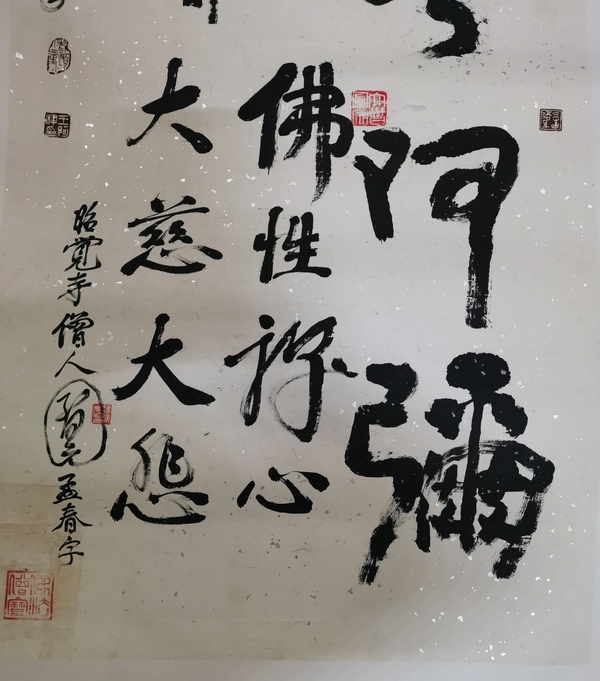 阿彌
佛性禪心
大慈大悲
昭覺寺僧人
孟春字
佛法僧寶